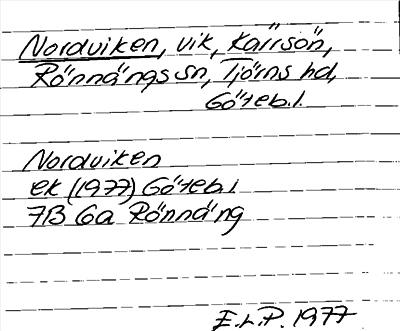 Norduiken, vik, Kärrsön,
Rönnängs sn, Tjörns hd,
Göteb.l.
Norduiken
ek (1977) Göteb.l
7B 6a Rönnäng
E.L.P. 1977